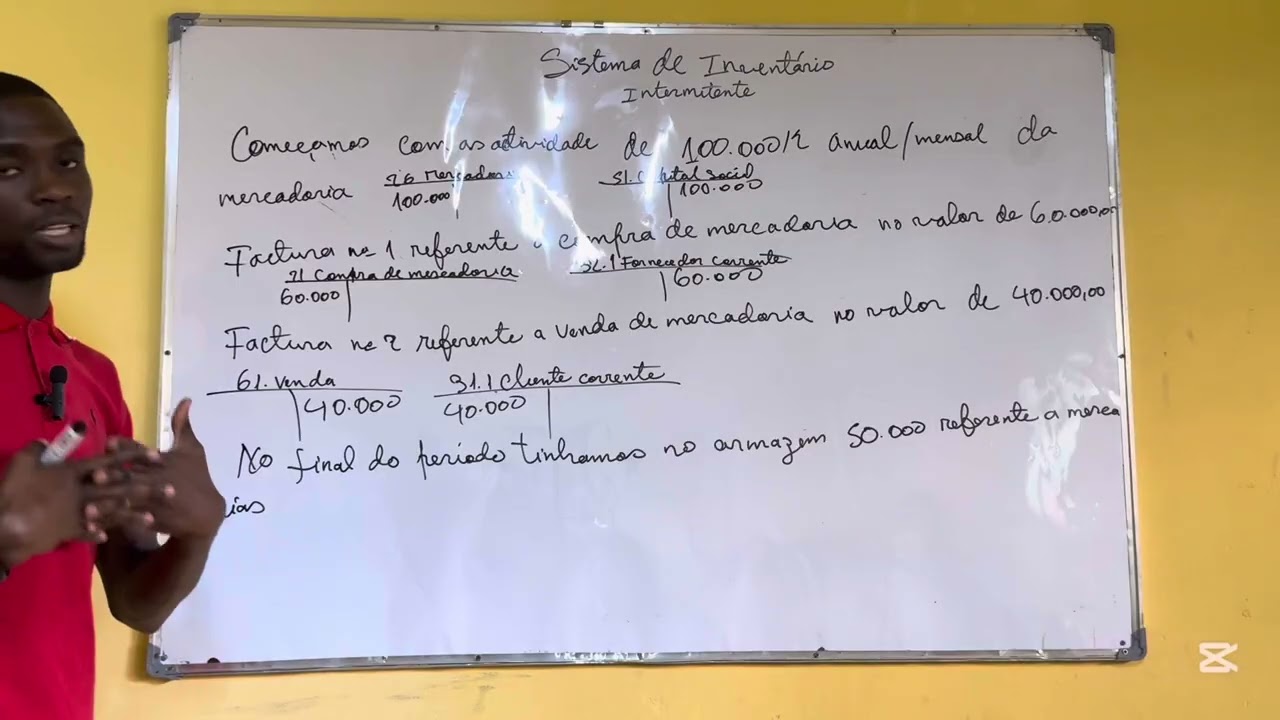 Sistema de Inventário
Intermitente
Começamos com as actividade de 100.000/2 anual/mensal da
mercadoria 26 Mercadoria 51. Social
100.000 100.000
Factura nº 1 referente compra de mercadoria no valor de 60.000,00
21 Compra de mercadoria 32.1 Fornecedor corrente
60.000 60.000
Factura nº 2 referente a venda de mercadoria no valor de 40.000,00
61. Venda 31.1 Cliente corrente
40.000 40.000
No final do período tinhamos no armazém 50.000 referente a merca
ias